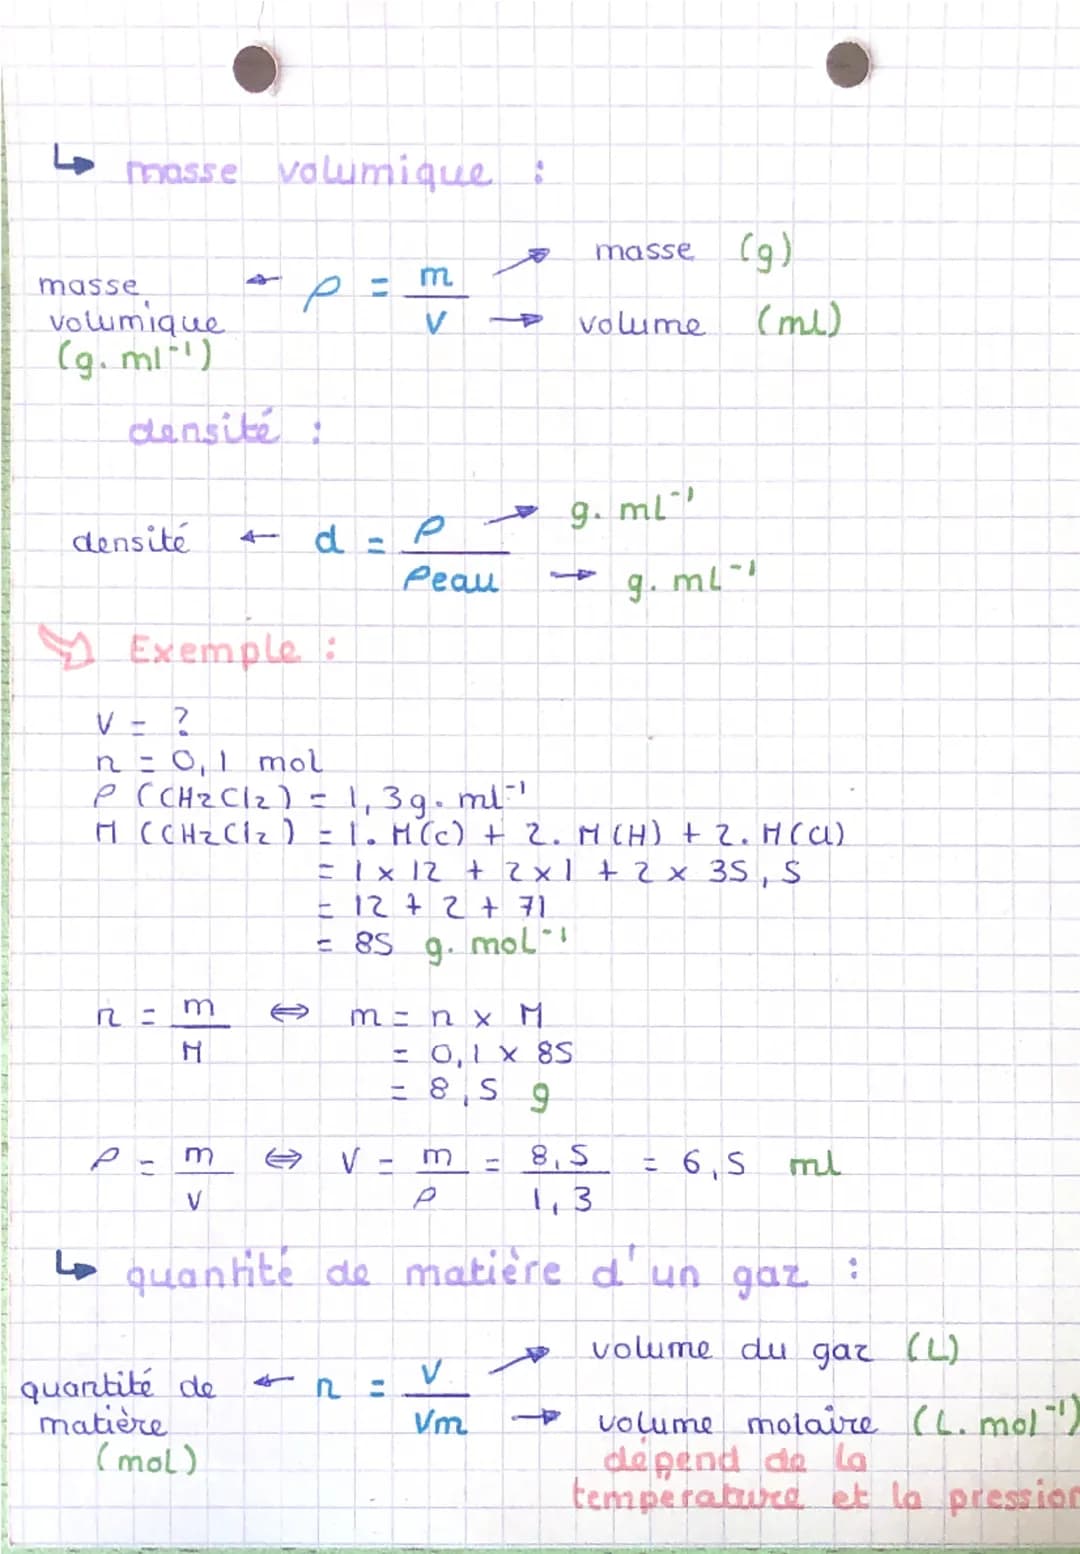 ↳ masse volumique :
masse volumique (g. ml⁻¹) ← ρ = m / V → masse (g) → volume (ml)
densité :
densité ← d = ρ / ρeau → g. mL⁻¹ → g. mL⁻¹
Exemple :
V = ?
n = 0,1 mol
ρ (CH2Cl2) = 1,3 g. ml⁻¹
M (CH2Cl2) = 1. M(C) + 2. M(H) + 2. M(Cl)
= 1 x 12 + 2 x 1 + 2 x 35,5
= 12 + 2 + 71
= 85 g. mol⁻¹
n = m / M ⇔ m = n x M
= 0,1 x 85
= 8,5 g
ρ = m / V ⇔ V = m / ρ = 8,5 / 1,3 = 6,5 ml
↳ quantité de matière d'un gaz :
quantité de matière (mol) ← n = V / Vm → volume du gaz (L) → volume molaire (L. mol⁻¹)
dépend de la
température et la pression